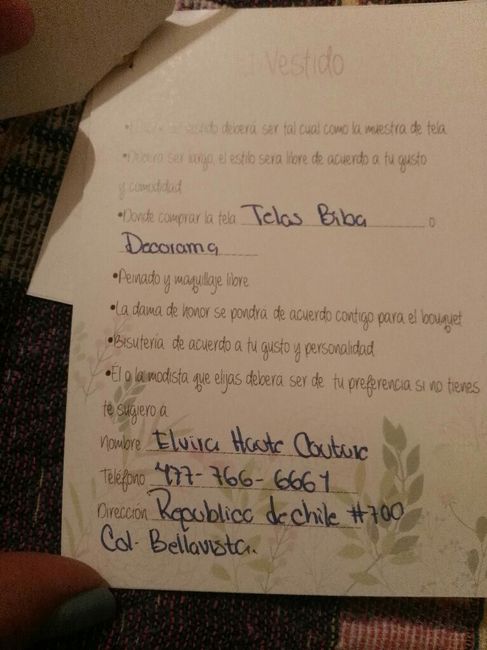 Vestido
• vestido deberá ser tal cual como la muestra de tela
• Deberá ser largo, el estilo sera libre de acuerdo a tu gusto
y comodidad
• Donde comprar la tela Telas Biba o
Decorama
• Peinado y maquillaje libre
• La dama de honor se pondrá de acuerdo contigo para el bouquet
• Bisuteria de acuerdo a tu gusto y personalidad
• El o la modista que elijas debera ser de tu preferencia si no tienes
te sugiero a
Nombre Elvira Haute Couture
Teléfono 477-766-6661
Dirección Republica de chile #700
Col. Bellavista.